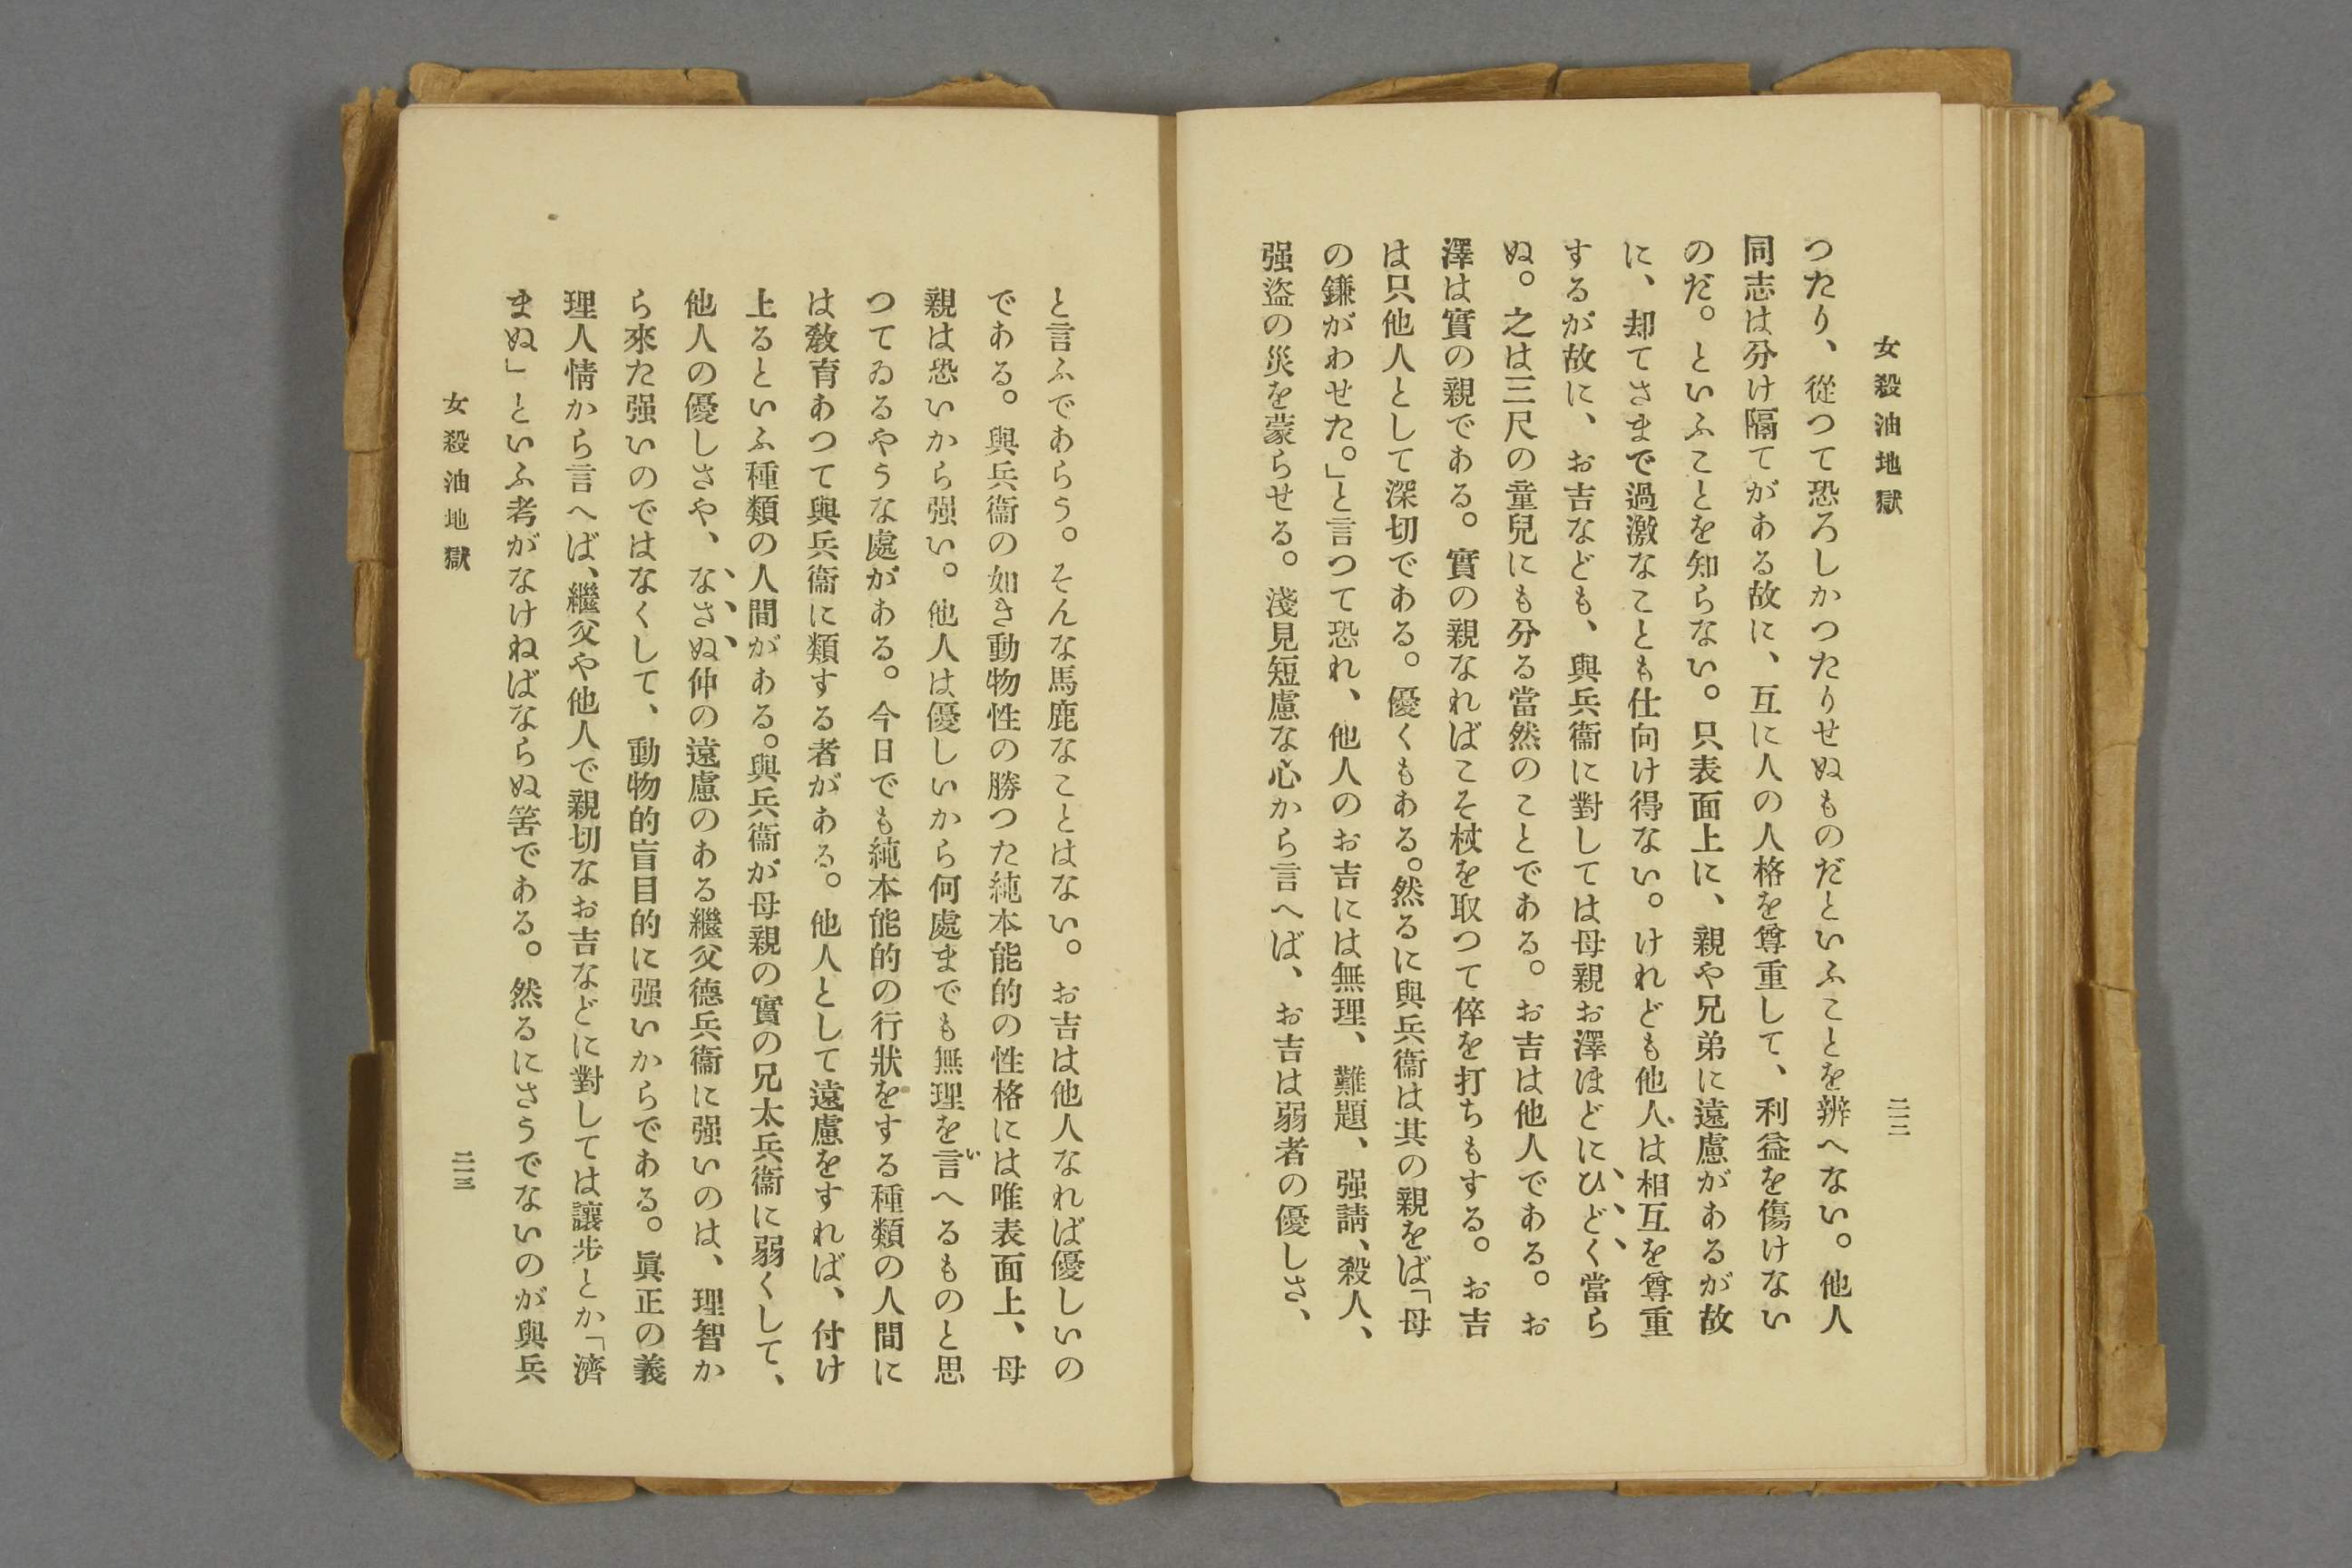 女殺油地獄
二一二
つたり、從つて恐ろしかつたりせぬものだといふことを辨へない。他人
同志は分け隔てがある故に、互に人の人格を尊重して、利益を傷けない
のだ。といふことを知らない。只表面上に、親や兄弟に遠慮があるが故
に、却てさまで過激なことも仕向け得ない。けれども他人は相互を尊重
するが故に、お吉なども、與兵衞に對しては母親お澤ほどにひどく當ら
ぬ。之は三尺の童兒にも分る當然のことである。お吉は他人である。お
澤は實の親である。實の親なればこそ杖を取つて倅を打ちもする。お吉
は只他人として深切である。優くもある。然るに與兵衞は其の親をば「母
の鎌がわせた。」と言つて恐れ、他人のお吉には無理、難題、强請、殺人、
强盜の災を蒙らせる。淺見短慮な心から言へば、お吉は弱者の優しさ、
と言ふであらう。そんな馬鹿なことはない。お吉は他人なれば優しいの
である。與兵衞の如き動物性の勝つた純本能的の性格には唯表面上、母
親は恐いから强い。他人は優しいから何處までも無理を言へるものと思
つてゐるやうな處がある。今日でも純本能的の行狀をする種類の人間に
は敎育あつて與兵衞に類する者がある。他人として遠慮をすれば、付け
上るといふ種類の人間がある。與兵衞が母親の實の兄太兵衞に弱くして、
他人の優しさや、なさぬ仲の遠慮のある繼父德兵衞に强いのは、理智か
ら來た强いのではなくして、動物的盲目的に强いからである。眞正の義
理人情から言へば、繼父や他人で親切なお吉などに對しては讓步とか「濟
まぬ」といふ考がなけねばならぬ筈である。然るにさうでないのが與兵
女殺油地獄
二一三